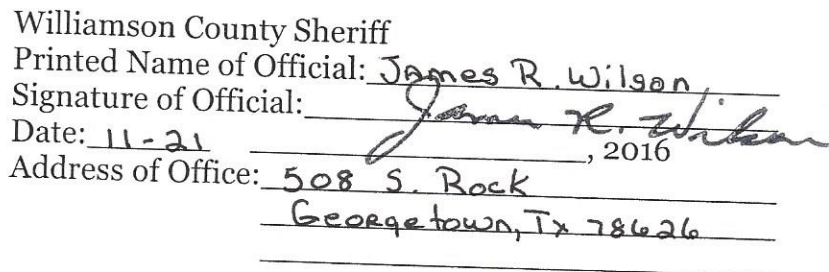 Williamson County Sheriff
Printed Name of Official: James R. Wilson
Signature of Official: James R. Wilson
Date: 11-21 , 2016
Address of Office: 508 S. Rock
Georgetown, Tx 78626